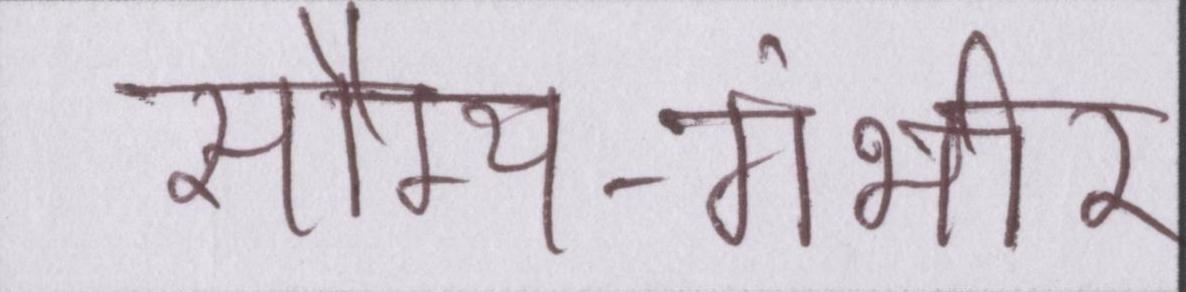 सौम्य-गंभीर